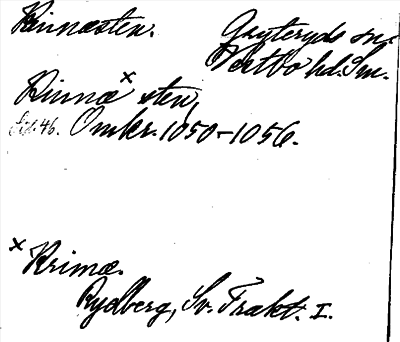 Rinnæsten.
Gryteryds sn.
Västbo hd. Sm.
Rinnæ ˣ sten,
Sid. 46. Omkr. 1050-1056.
ˣ Krimæ.
Rydberg, Sv. Trakt. I.